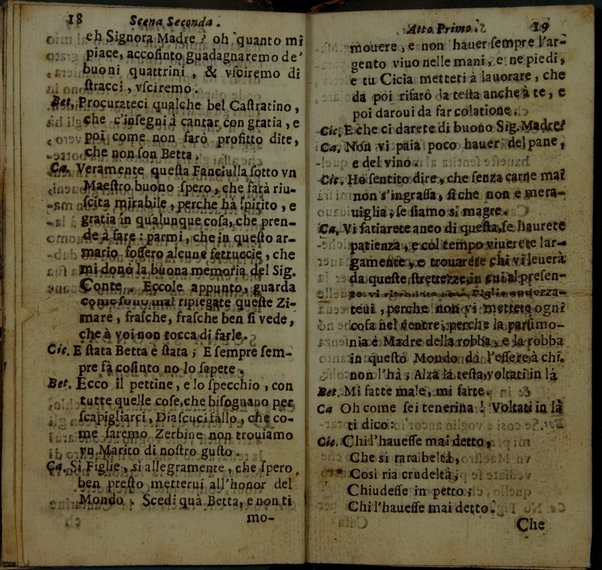 18 Scena Seconda.
eh Signora Madre? oh quanto mi
piace, accosinto guadagnaremo de'
buoni quattrini, & vsciremo di
stracci, vsciremo.
Bet. Procurateci qualche bel Castratino,
che c'insegni à cantar con gratia, e
poi come non farò profitto dite,
che non son Betta.
Ca. Veramente questa Fanciulla sotto vn
Maestro buono spero, che farà riu-
scita mirabile, perche hà spirito, e
gratia in qualunque cosa, che pren-
de à fare: parmi, che in questo ar-
mario fossero alcune fettuccie, che
mi donò la buona memoria del Sig.
Conte. Eccole appunto, guarda
come sono mal ripiegate queste Zi-
mare, frasche, frasche ben si vede,
che à voi non tocca di farle.
Cic. E stata Betta è stata; E sempre sem-
pre fà cosinto no lo sapete.
Bet. Ecco il pettine, e lo specchio, con
tutte quelle cose, che bisognano per
scapigliarci, Diascuci fallo, che co-
me saremo Zerbine non trouiamo
vn Marito di nostro gusto.
Ca. Si Figlie, si allegramente, che spero
ben presto metterui all'honor del
Mondo. Scedi quà Betta, e non ti
mo-
Atto Primo. 19
mouere, e non hauer sempre l'ar-
gento viuo nelle mani, e ne piedi,
e tu Cicia metteti à lauorare, che
da poi rifarò da testa anche à te, e
poi daroui da far colatione.
Cic. E che ci darete di buono Sig. Madre?
Ca. Non vi paia poco hauer del pane,
e del vino.
Cic. Ho sentito dire, che senza carne mai
non s'ingrassa, si che non è mera-
uiglia, se siamo sì magre.
Ca. Vi satiarete anco di questa, se haurete
patienza, e col tempo viuerete lar-
gamente, e trouarete chi vi leuerà
da queste strettezze, in cui al presen-
te vi ritrouate però Figlie auuezza-
teui, perche non vi mettete ogni
cosa nel ventre, perche la parsimo-
nia è Madre della robba, e la robba
in questo Mondo dà l'essere à chi
non l'hà; Alza la testa, voltati in là
Bet. Mi fatte male, mi farte.
Ca Oh come sei tenerina! Voltati in là
ti dico.
Cic. Chi l'hauesse mai detto,
Che si rara beltà,
Così ria crudeltà,
Chiudesse in petto;
Chi l'hauesse mai detto.
Che